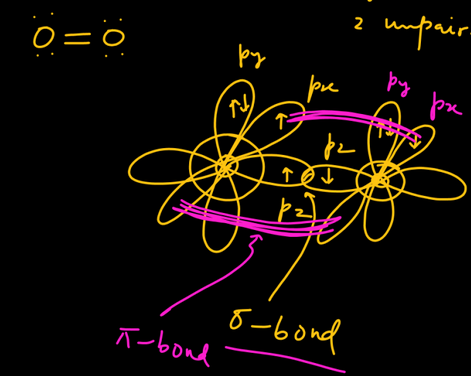 2 unpair
O = O
py
px
py
px
↑↓
↑
↑↓
↓
pz
↑
↓
pz
σ-bond
π-bond